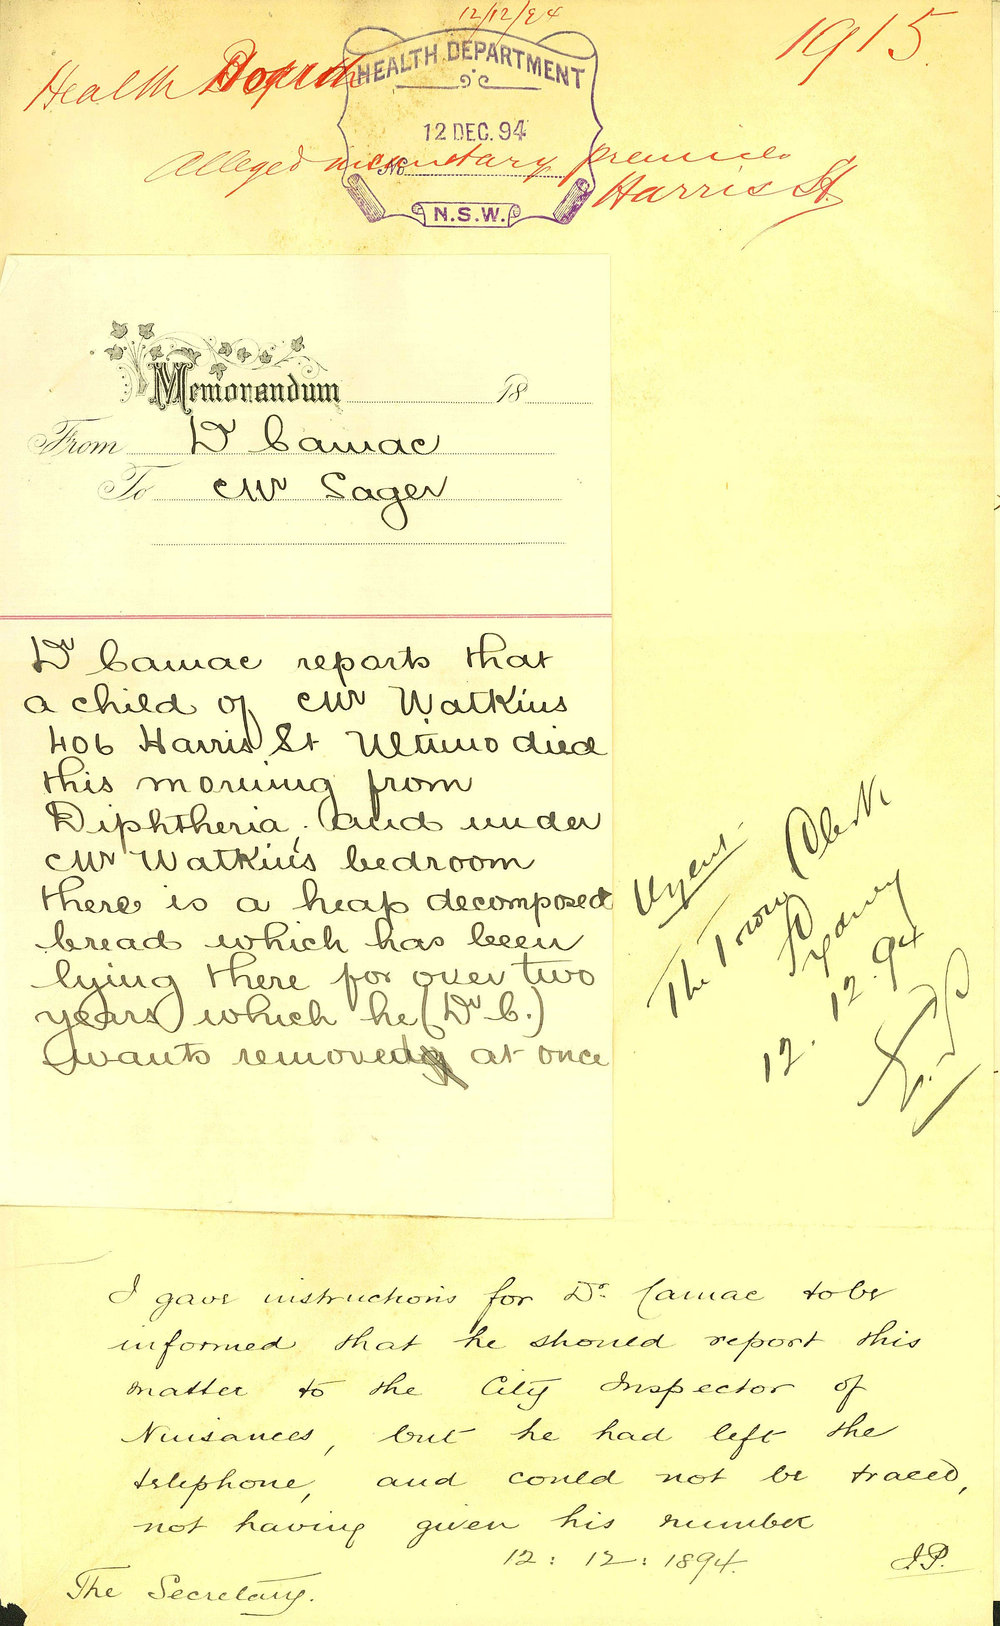 12/12/94
1915.
Health Board
HEALTH DEPARTMENT
12 DEC. 94
No
N.S.W.
Alleged insanitary premises
Harris St.
Memorandum 18
From Dr Camac
To Mr Sager
Dr Camac reports that
a child of Mr Watkins
406 Harris St Ultimo died
this morning from
Diphtheria; and under
Mr Watkin's bedroom
there is a heap decomposed
bread which has been
lying there for over two
years which he (Dr C.)
wants removed at once
Urgent
The Town Clerk
Sydney
12.12.94
I gave instructions for Dr. Camac to be
informed that he should report this
matter to the City Inspector of
Nuisances, but he had left the
telephone, and could not be traced,
not having given his number
12:12:1894.
J.P.
The Secretary.